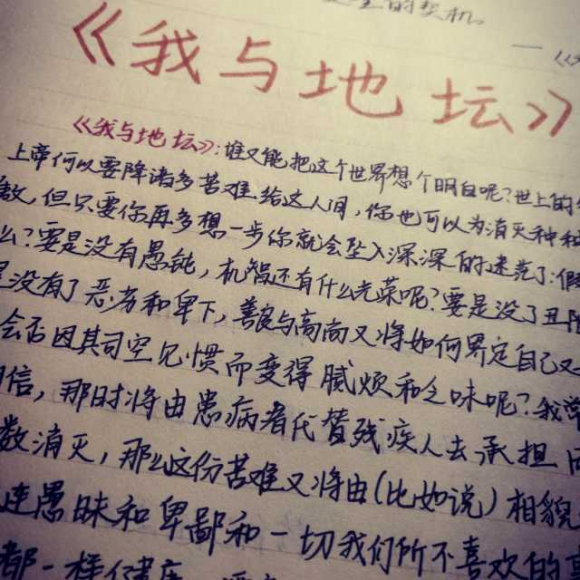 的契机。
—《
《我与地坛》
《我与地坛》：谁又能把这个世界想个明白呢？世上的
上帝何以要降诸多苦难给这人间，你也可以为消灭种种
敌，但只要你再多想一步你就会坠入深深的迷茫了：假
么？要是没有愚钝，机智还有什么光荣呢？要是没了丑陋
没有了恶劣和卑下，善良与高尚又将如何界定自己又
会否因其司空见惯而变得腻烦和乏味呢？我常
信，那时将由患病者代替残疾人去承担同
数消灭，那么这份苦难又将由（比如说）相貌
连愚昧和卑鄙和一切我们所不喜欢的事
都一样健康